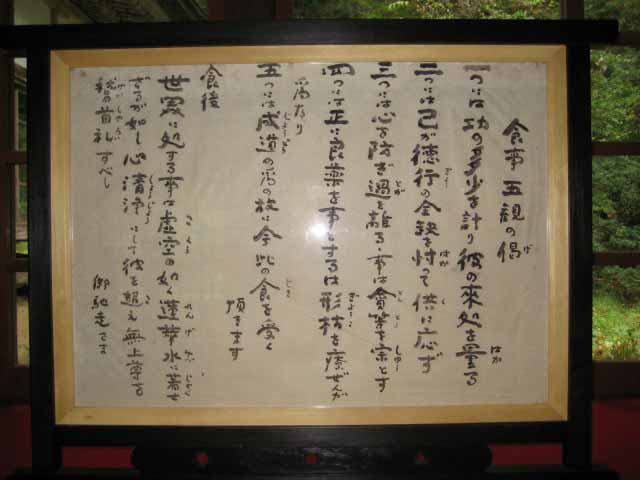 食事五観の偈
一つには功の多少を計り彼の来処を量る
二つには己が徳行の全缺を忖って供に応ず
三つには心を防ぎ過を離るゝ事は貪等を宗とす
四つには正に良薬を事とするは形枯を療ぜんが
為なり
五つには成道の為の故に今此の食を受く
頂きます
食後
世界に処する事は虚空の如く蓮華の水に著せ
ざるが如し心清浄にして彼を超え無上尊を
稽首礼すべし
御馳走さま